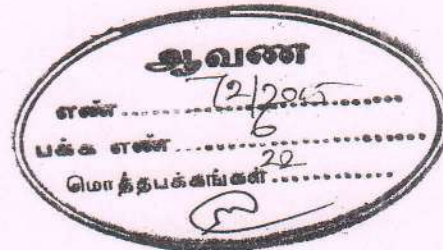 ஆவண
எண் 72/2005
பக்க எண் 6
மொத்தபக்கங்கள் 22